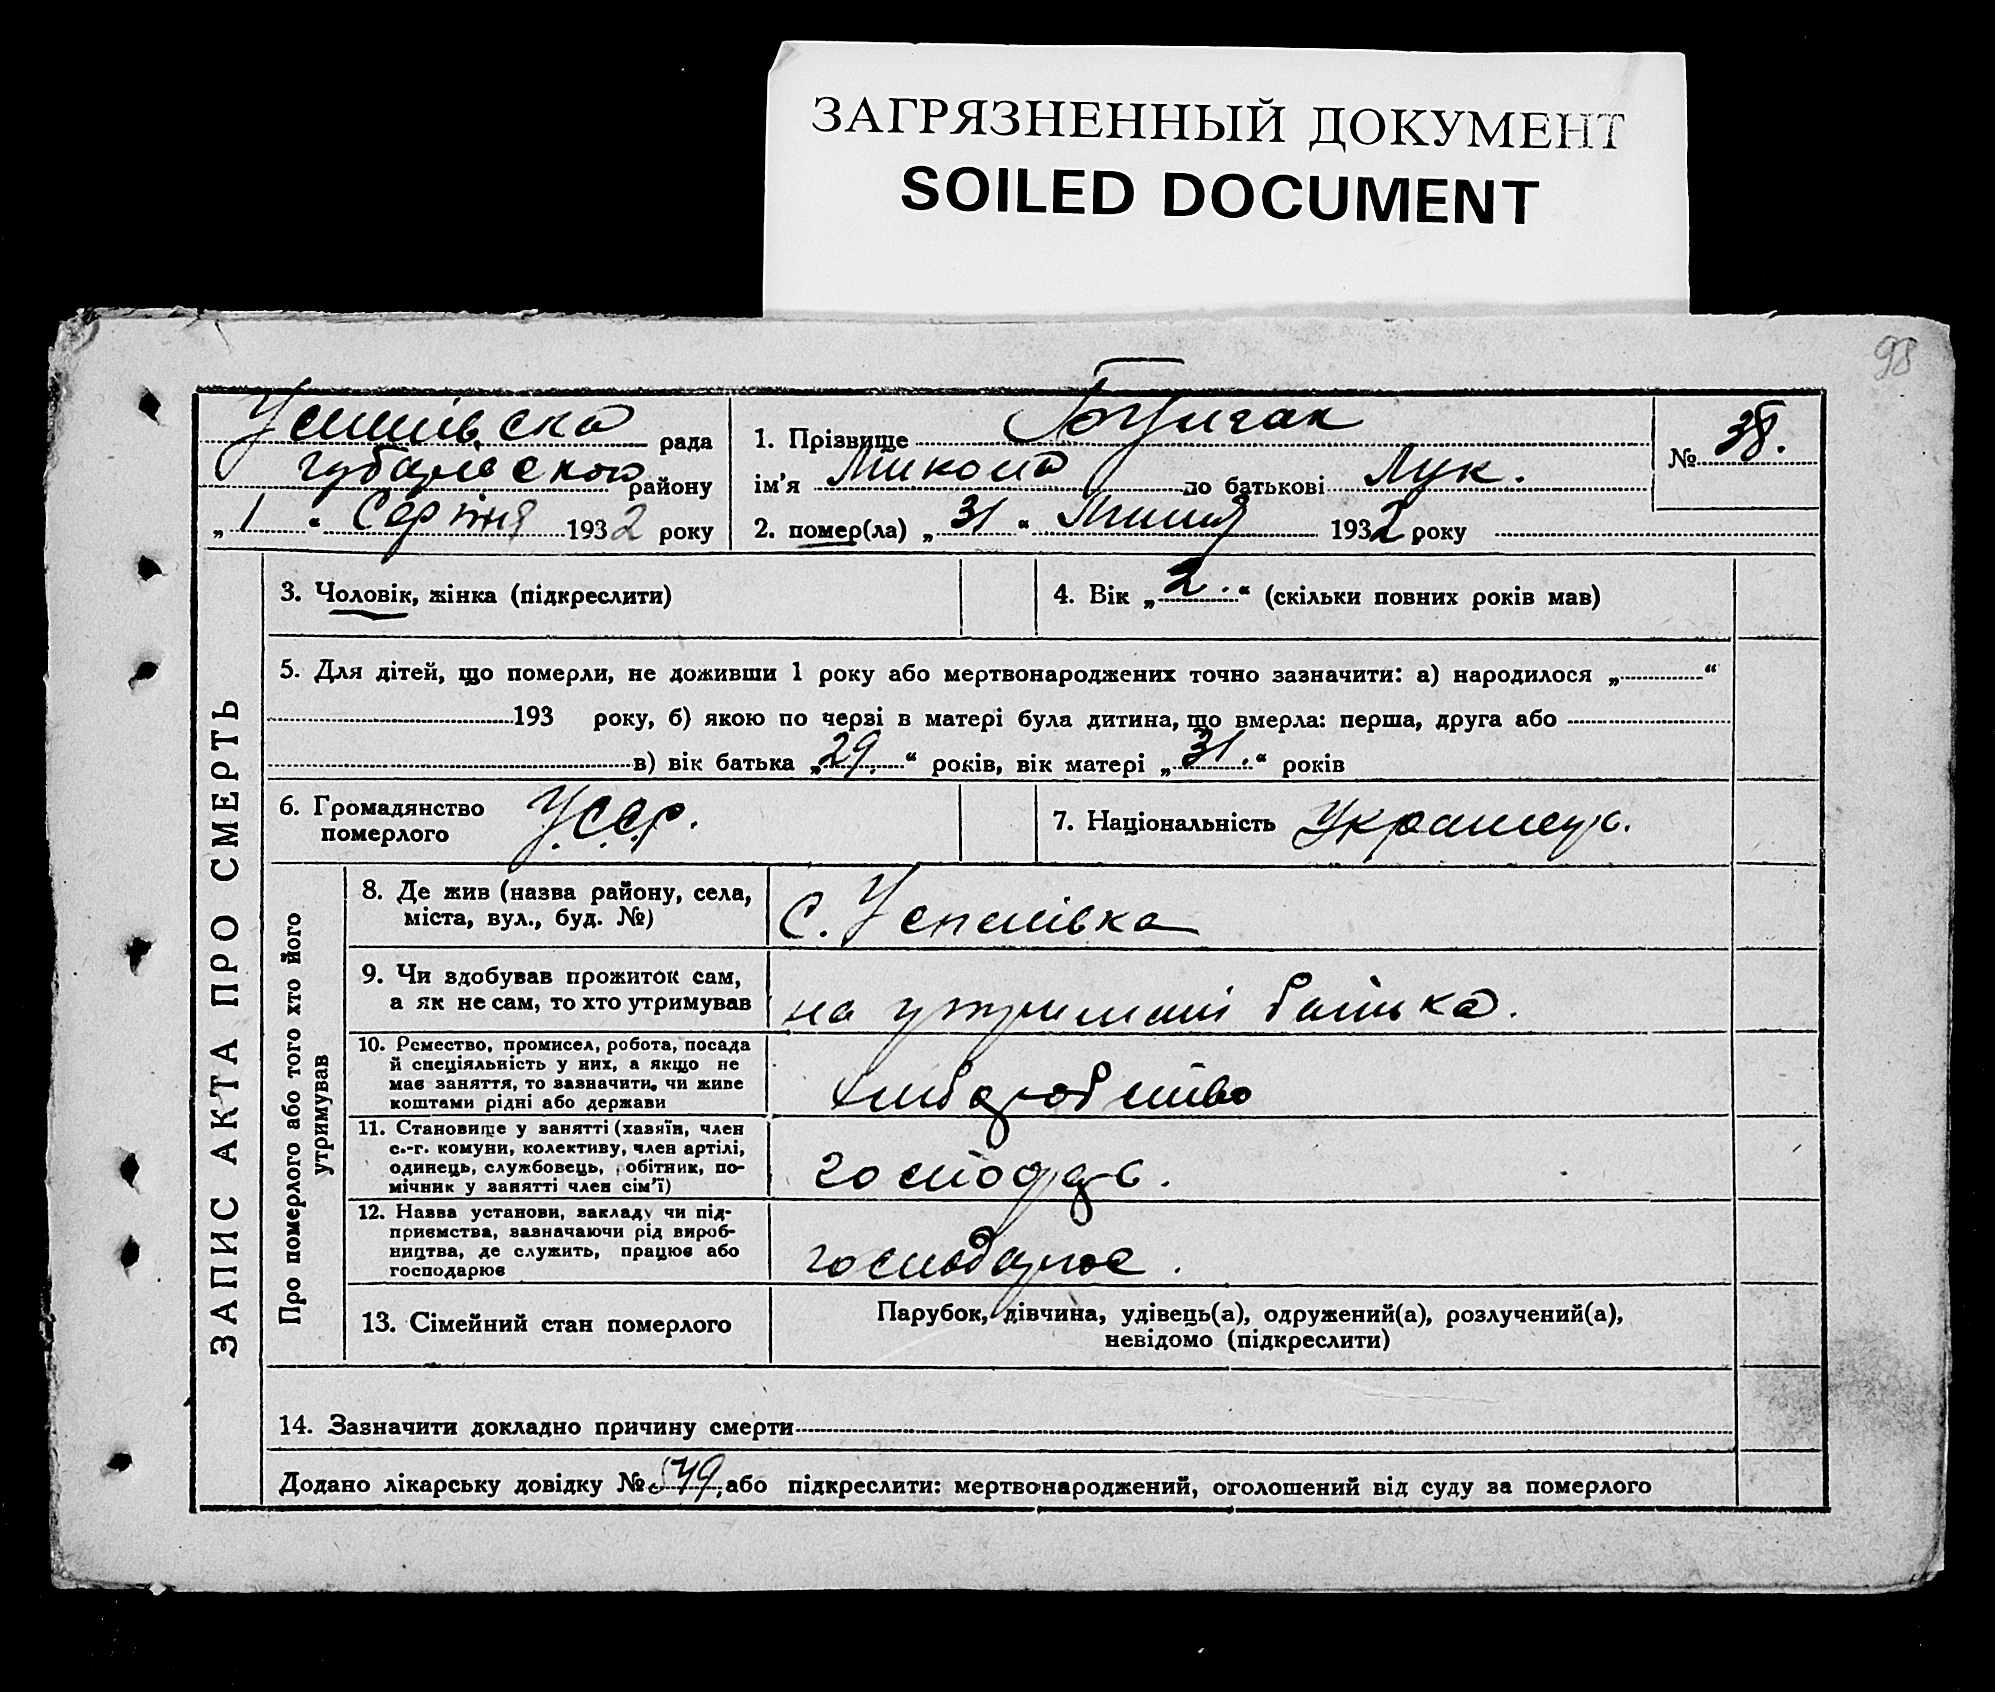 ЗАГРЯЗНЕННЫЙ ДОКУМЕНТ
SOILED DOCUMENT
98
рада
району
„ 1 “ Серпня 1932 року
1. Прізвище
ім'я Микола по батькові Лук.
2. помер(ла) „ 31 “ Липня 1932 року
№ 38.
ЗАПИС АКТА ПРО СМЕРТЬ
3. Чоловік, жінка (підкреслити)
4. Вік „ 2. “ (скільки повних років мав)
5. Для дітей, що померли, не доживши 1 року або мертвонароджених точно зазначити: а) народилося „ “
193 року, б) якою по черзі в матері була дитина, що вмерла: перша, друга або
в) вік батька „ 29. “ років, вік матері „ 31. “ років
6. Громадянство
померлого
УССР.
7. Національність
Про померлого або того хто його
утримував
8. Де жив (назва району, села,
міста, вул., буд. №)
С. Успенівка
9. Чи здобував прожиток сам,
а як не сам, то хто утримував
на утриманні батька.
10. Ремество, промисел, робота, посада
й спеціяльність у них, а якщо не
має заняття, то зазначити, чи живе
коштами рідні або держави
хліборобство
11. Становище у занятті (хазяїн, член
с.-г. комуни, колективу, член артілі,
одинець, службовець, робітник, по-
мічник у занятті член сім'ї)
господар.
12. Назва установи, закладу чи під-
приємства, зазначаючи рід вироб-
ництва, де служить, працює або
господарює
господарює.
13. Сімейний стан померлого
Парубок, дівчина, удівець(а), одружений(а), розлучений(а),
невідомо (підкреслити)
14. Зазначити докладно причину смерти
Додано лікарську довідку № або підкреслити: мертвонароджений, оголошений від суду за померлого